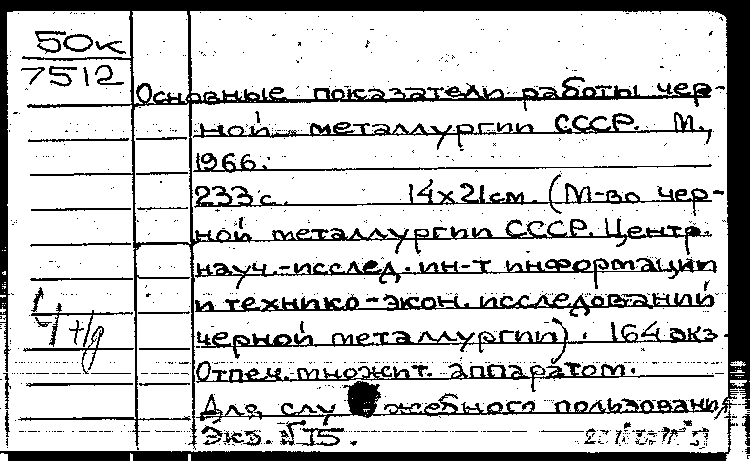 50к
7512
Основные показатели работы чер-
ной металлургии СССР. М.,
1966.
233 с. 14х21 см. (М-во чер-
ной металлургии СССР. Центр.
науч.-исслед. ин-т информации
и технико-экон. исследований
черной металлургии). 164 экз.
Отпеч. множит. аппаратом.
Для служебного пользования
Экз. №15.